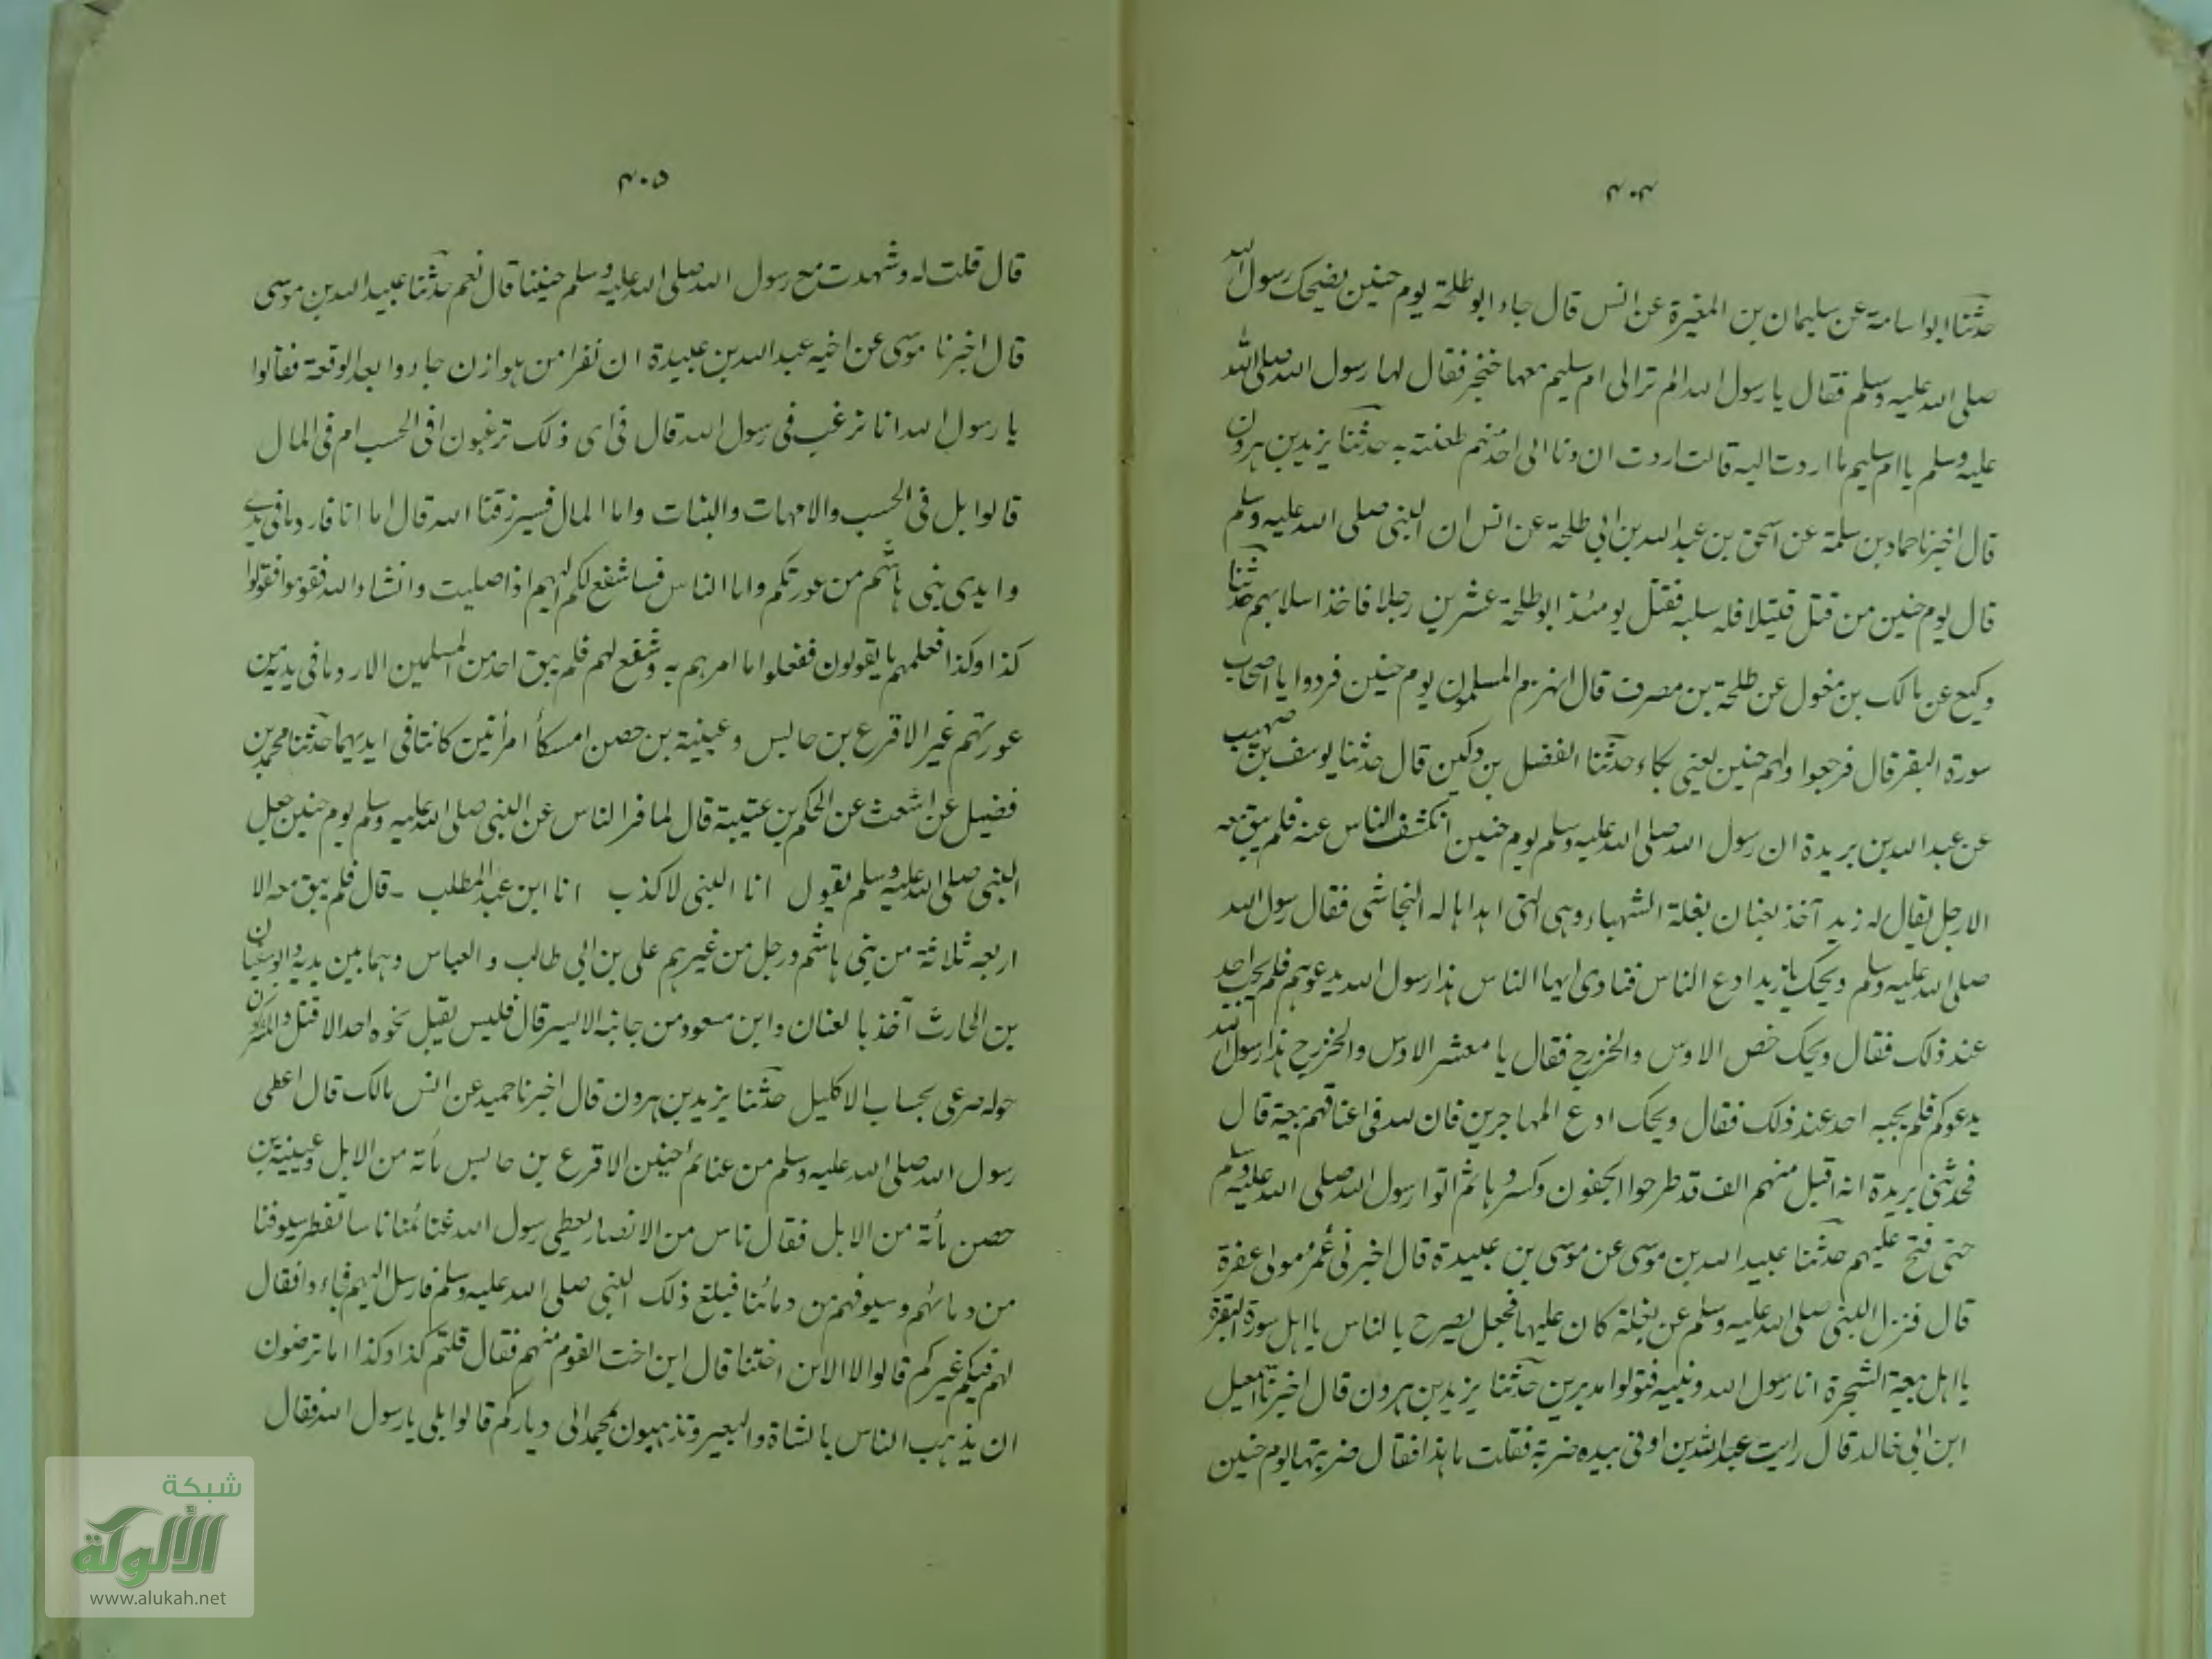 ۴۰۴
حدثنا ابو اسامة عن سليمان بن المغيرة عن انس قال جاء ابو طلحة يوم حنين يضحك رسول الله
صلى الله عليه وسلم فقال يا رسول الله الم تر الى ام سليم معها خنجر فقال لها رسول الله صلى الله
عليه وسلم يا ام سليم ما اردت اليه قالت اردت ان دنا الى احد منهم طعنته به حدثنا يزيد بن هرون
قال اخبرنا حماد بن سلمة عن اسحق بن عبد الله بن ابي طلحة عن انس ان النبي صلى الله عليه وسلم
قال يوم حنين من قتل قتيلا فله سلبه فقتل يومئذ ابو طلحة عشرين رجلا فاخذ اسلابهم حدثنا
وكيع عن مالك بن مغول عن طلحة بن مصرف قال انهزم المسلمون يوم حنين فردوا يا اصحاب
سورة البقر قال فرجعوا ولهم حنين يعني بكاء حدثنا الفضل بن دكين قال حدثنا يوسف بن صهيب
عن عبد الله بن بريدة ان رسول الله صلى الله عليه وسلم يوم حنين انكشف الناس عنه فلم يبق معه
الا رجل يقال له زيد آخذ بعنان بغلة الشهباء وهي التي اهداها له النجاشي فقال رسول الله
صلى الله عليه وسلم ويحك يا زيد ادع الناس فنادى ايها الناس هذا رسول الله يدعوكم فلم يجب احد
عند ذلك فقال ويحك خص الاوس والخزرج فقال يا معشر الاوس والخزرج هذا رسول الله
يدعوكم فلم يجبه احد عند ذلك فقال ويحك ادع المهاجرين فان لله في اعناقهم بيعة قال
فحدثني بريدة انه اقبل منهم الف قد طرحوا الجفون وكسروها ثم اتوا رسول الله صلى الله عليه وسلم
حتى فتح عليهم حدثنا عبيد الله بن موسى عن موسى بن عبيدة قال اخبرني عمر مولى غفرة
قال فنزل النبي صلى الله عليه وسلم عن بغلة كان عليها فجعل يصرح بالناس يا اهل سورة البقرة
يا اهل بيعة الشجرة انا رسول الله ونبيه فتولوا مدبرين حدثنا يزيد بن هرون قال اخبرنا اسمعيل
ابن ابي خالد قال رايت عبد الله بن اوفى بيده ضربة فقلت ما هذا فقال ضربتها يوم حنين
۴۰۵
قال قلت له وشهدت مع رسول الله صلى الله عليه وسلم حنينا قال نعم حدثنا عبيد الله بن موسى
قال اخبرنا موسى عن اخيه عبد الله بن عبيدة ان نفرا من هوازن جاءوا بعد الوقعة فقالوا
يا رسول الله انا نرغب في رسول الله قال في اى ذلك ترغبون افي الحسب ام في المال
قالوا بل في الحسب والامهات والبنات واما المال فسيرزقنا الله قال اما انا فارد ما في يدي
وايدي بني هاشم من عورتكم واما الناس فساشفع لكم اليهم اذا صليت وانشاء الله فقوموا فقولوا
كذا وكذا فعلمهم ما يقولون ففعلوا اما امرهم به وشفع لهم فلم يبق احد من المسلمين الا رد ما في يديه من
عورتهم غير الاقرع بن حابس وعيينة بن حصن امسكا امرأتين كانتا في ايديهما حدثنا محمد بن
فضيل عن اشعث عن الحكم بن عتيبة قال لما فر الناس عن النبي صلى الله عليه وسلم يوم حنين جعل
النبي صلى الله عليه وسلم يقول انا النبي لا كذب انا ابن عبد المطلب ۔ قال فلم يبق معه الا
اربعة ثلاثة من بني هاشم ورجل من غيرهم على بن ابي طالب والعباس وهما بين يديه وابو سفيان
بن الحارث آخذ بالعنان وابن مسعود من جانبه الايسر قال فليس يقبل نحوه احد الا قتل والمشركون
حوله صرعى بحساب الاكليل حدثنا يزيد بن هرون قال اخبرنا حميد عن انس مالك قال اعطى
رسول الله صلى الله عليه وسلم من غنائم حنين الاقرع بن حابس مأتة من الابل وعيينة بن
حصن مأتة من الابل فقال ناس من الانصار يعطي رسول الله غنائمنا ناسا تقطر سيوفنا
من دمائهم وسيوفهم من دمائنا فبلغ ذلك النبي صلى الله عليه وسلم فارسل اليهم فجاءوا فقال
لهم فيكم غيركم قالوا لا الا ابن اختنا قال ابن اخت القوم منهم فقال قلتم كذا وكذا اما ترضون
ان يذهب الناس بالشاة والبعير وتذهبون بمحمد الى دياركم قالوا بلى يا رسول الله فقال
شبكة
الألوكة
www.alukah.net